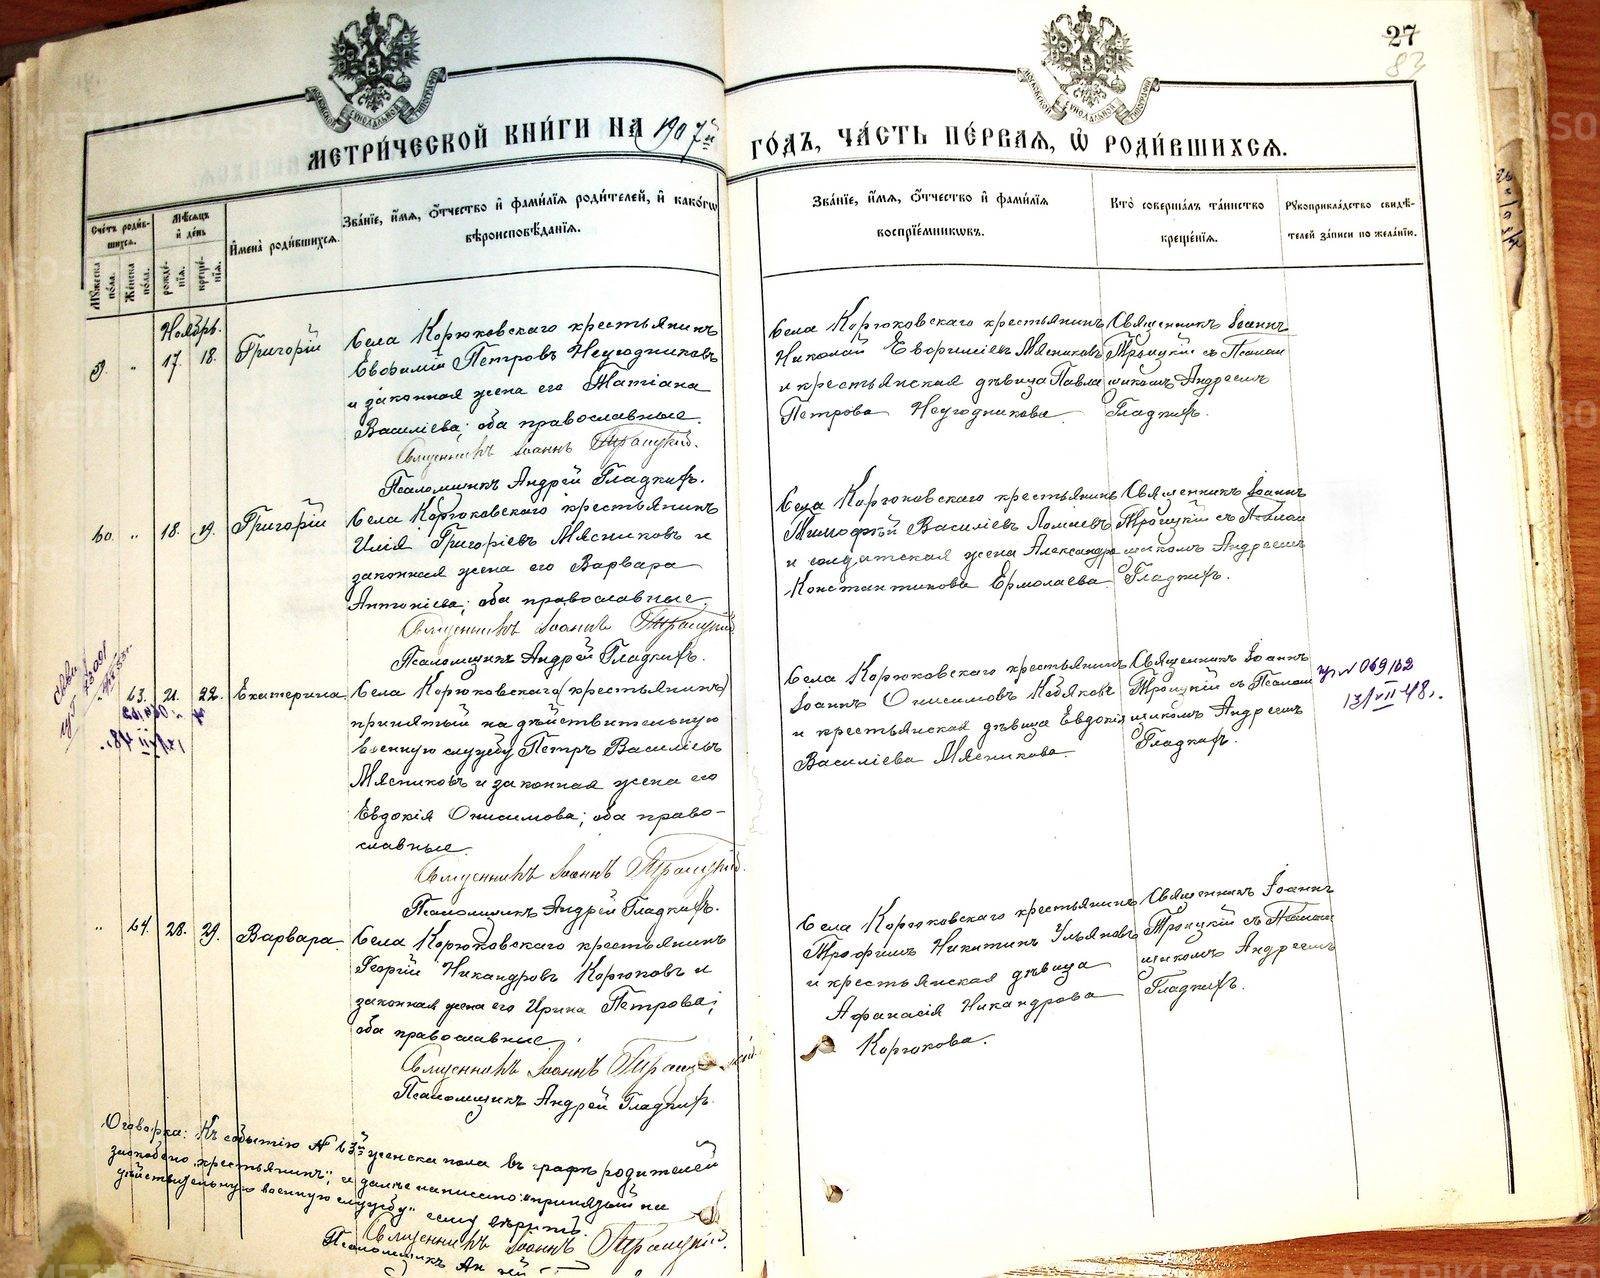 27
83
МЕТРИ́ЧЕСКОЙ КНИ́ГИ НА 1907й
ГО́ДЪ, ЧА́СТЬ ПЕ́РВАЯ, Ѡ҆ РОДИ́ВШИХСЯ.
Сче́тъ роди́вшихся.
Мꙋ́жеска по́ла.
Же́нска по́ла.
Мѣ́сяцъ и҆ де́нь
рожде́нїя.
креще́нїя.
И҆мена̀ роди́вшихся.
Зва́нїе, и҆́мя, ѻ҆́тчество и҆ фами́лїя роди́телей, и҆ како́гѡ
вѣроисповѣ́данїя.
Зва́нїе, и҆́мя, ѻ҆́тчество и҆ фами́лїя
воспрїе́мникѡвъ.
Кто̀ соверша́лъ та́инство
креще́нїя.
Рꙋкоприкла́дство свидѣ́-
телей за́писи по жела́нїю.
Ноябрь.
59. „ 17. 18. Григорій
Села Корюковскаго крестьянинъ
Евфимій Петровъ Неугодниковъ
и законная жена его Татіана
Василіева; оба православные.
Священникъ Іоаннъ Троицкій.
Псаломщикъ Андрей Гладкихъ.
Села Корюковскаго крестьянинъ
Николай Евфиміевъ Мясниковъ
и крестьянская дѣвица Павла
Петрова Неугодникова
Священникъ Іоаннъ
Троицкій съ Псалом
щикомъ Андреемъ
Гладкихъ.
60. „ 18. 19. Григорій
Села Корюковскаго крестьянинъ
Илія Григоріевъ Мясниковъ и
законная жена его Варвара
Антоніева; оба православные.
Священникъ Іоаннъ Троицкій
Псаломщикъ Андрей Гладкихъ.
Села Корюковскаго крестьянинъ
Тимофей Василіевъ
и солдатская жена Александра
Константинова Ермолаева
Священникъ Іоаннъ
Троицкій съ Псалом
щикомъ Андреемъ
Гладкихъ.
63. 21. 22. Екатерина
Села Корюковскаго (крестьянинъ)
принятый на дѣйствительную
военную службу Петръ Василіевъ
Мясниковъ и законная жена его
Евдокія Онисимова; оба право-
славные.
Священникъ Іоаннъ Троицкій.
Псаломщикъ Андрей Гладкихъ.
Села Корюковскаго крестьянинъ
Іоаннъ Онисимовъ Кобяковъ
и крестьянская дѣвица Евдокія
Василіева Мясникова.
Священникъ Іоаннъ
Троицкій съ Псалом
щикомъ Андреемъ
Гладкихъ.
№ 069162
13/VII 48г.
„ 64. 28. 29. Варвара
Села Корюковскаго крестьянинъ
Георгій Никандровъ Корюковъ и
законная жена его Ирина Петрова;
оба православные.
Священникъ Іоаннъ
Псаломщикъ Андрей Гладкихъ.
Села Корюковскаго крестьянинъ
Трофимъ Никитинъ Ульяновъ
и крестьянская дѣвица
Афанасія Никандрова
Корюкова.
Священникъ Іоаннъ
Троицкій съ Псалом
щикомъ Андреемъ
Гладкихъ.
Оговорка: Къ событію № 63й женска пола въ графѣ родителей
заскоблено „крестьянинъ“; и далѣе написано: „принятый на
дѣйствительную военную службу“ сему вѣрить.
Священникъ Іоаннъ Троицкій.
Псаломщикъ